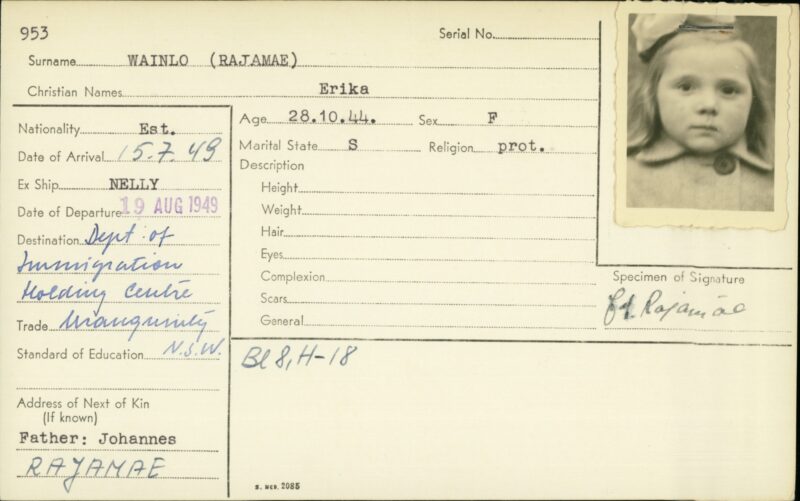 953
Serial No.
Surname WAINLO (RAJAMAE)
Christian Names Erika
Nationality Est.
Date of Arrival 15.7.49
Ex Ship NELLY
Date of Departure 19 AUG 1949
Destination Dept of
Immigration
Holding Centre
Uranquinty
Trade
N.S.W.
Standard of Education
Address of Next of Kin
(If known)
Father: Johannes
RAJAMAE
Age 28.10.44. Sex F
Marital State S Religion prot.
Description
Height
Weight
Hair
Eyes
Complexion
Scars
General
Specimen of Signature
Rajamäe
Bl 8, H-18
S. MCD. 2085